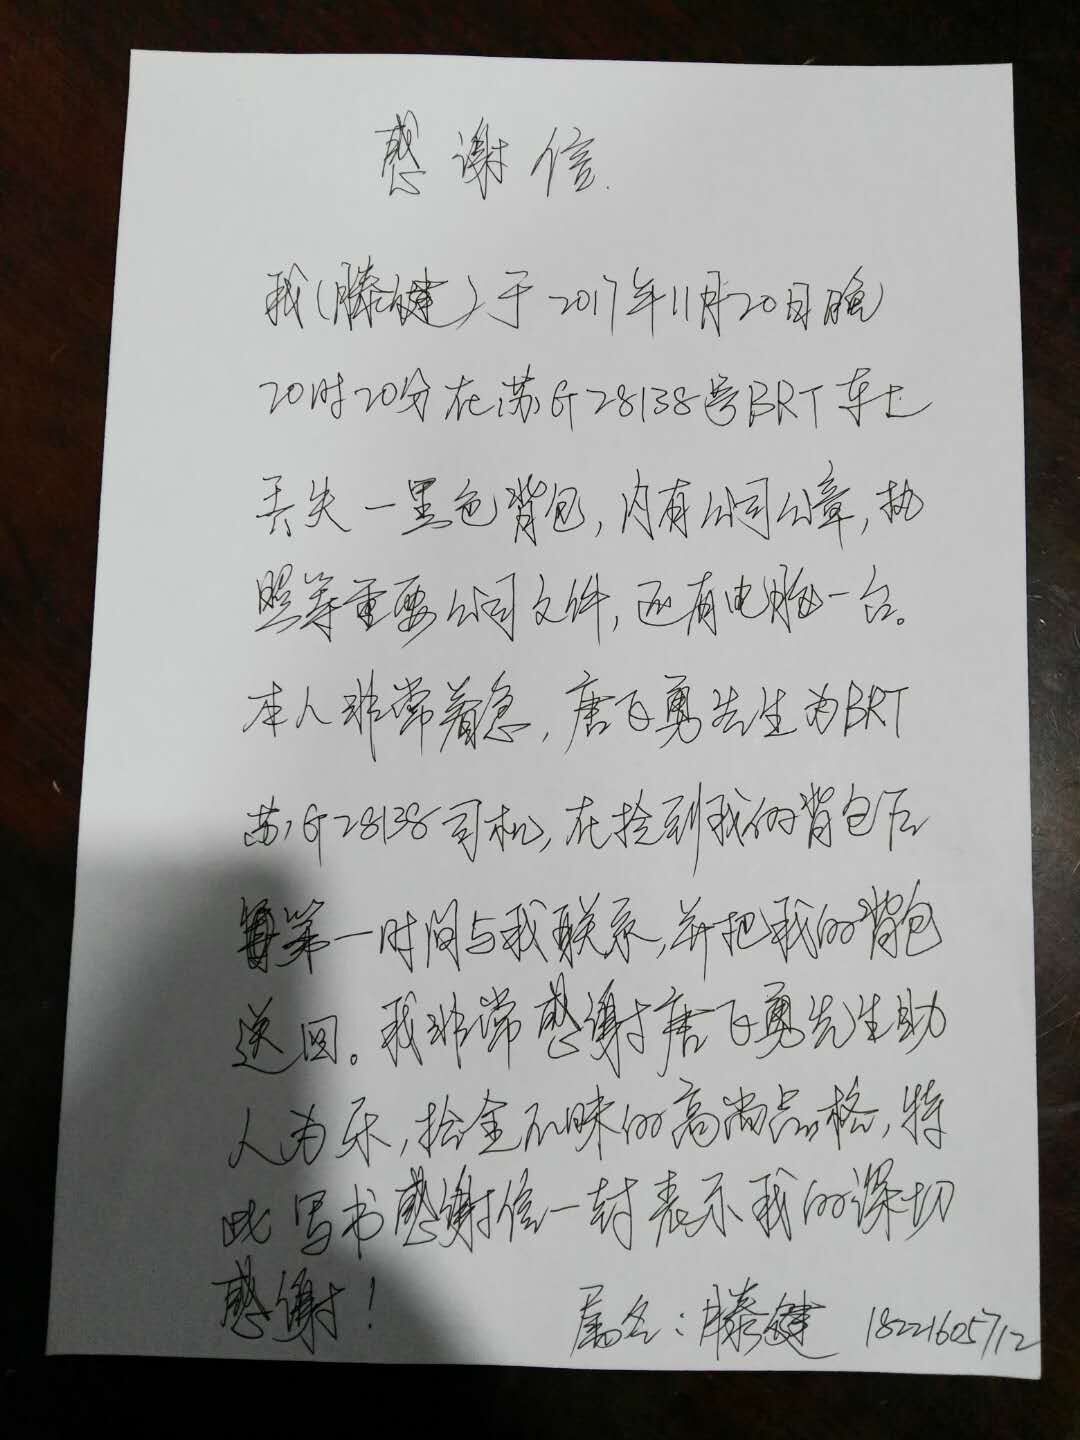 感谢信.
我(滕健)于2017年11月20日晚
20时20分在苏G28138号BRT车上
丢失一黑色背包,内有公司公章,执
照等重要公司文件,还有电脑一台。
本人非常着急,唐飞勇先生为BRT
苏G28138司机,在捡到我的背包后
第一时间与我联系,并把我的背包
送回。我非常感谢唐飞勇先生助
人为乐,拾金不昧的高尚品格,特
此写书感谢信一封表示我的深切
感谢!
属名:滕健 18221605712